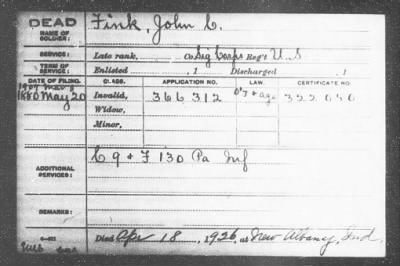 DEAD
NAME OF SOLDIER: Fink, John C.
SERVICE: Late rank, Co. Sig Corps Reg't U.S
TERM OF SERVICE: Enlisted , 1 Discharged , 1
DATE OF FILING. CLASS. APPLICATION NO. CERTIFICATE NO.
1907
1880 May 20 Invalid, 366 312 322 050
Widow,
Minor,
ADDITIONAL SERVICES: C 9 & F 130 Pa Inf
REMARKS:
Died Apr 18, 1926, at New Albany, Ind.